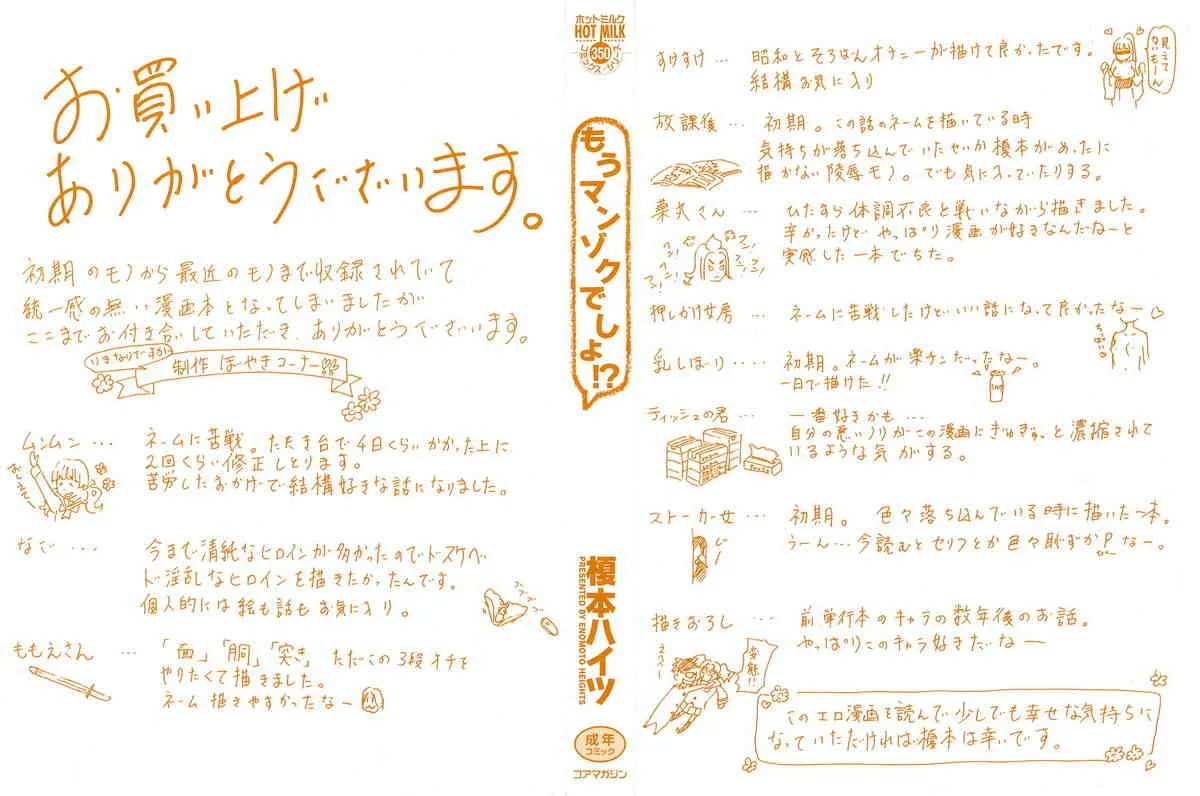 お買い上げ
ありがとうございます。
初期のモノから最近のモノまで収録されていて
統一感の無い漫画本となってしまいましたが
ここまでお付き合いしていただき、ありがとうございます。
いきなりですが
制作 ぼやきコーナー
ムンムン…
ネームに苦戦。たたき台で4日くらいかかった上に
2回くらい修正しとります。
苦労したおかげで結構好きな話になりました。
なご…
今まで清純なヒロインが多かったのでドスケベ
ド淫乱なヒロインを描きたかったんです。
個人的には絵も話もお気に入り。
ももえさん …
「面」「胴」「突き」ただこの3段オチを
やりたくて描きました。
ネーム描きやすかったなー
ホットミルク
HOT MILK
コミックスシリーズ
350
もうマンゾクでしょ!?
榎本ハイツ
PRESENTED BY ENOMOTO HEIGHTS
成年
コミック
コアマガジン
すけすけ…
昭和とそろばんオナニーが描けて良かったです。
結構お気に入り
見えて
ないもーん
放課後 …
初期。この話のネームを描いている時
気持ちが落ち込んでいたせいか榎本がめったに
描かない陵辱モノ。でも気に入っていたりする。
薬式さん …
ひたすら体調不良と戦いながら描きました。
辛かったけどやっぱり漫画が好きなんだなーと
実感した一本でした。
押しかけ女房 …
ネームに苦戦したけどいい話になって良かったなー
ちっぱい
乳しぼり…
初期。ネームが楽チンだったなー。
一日で描けた!!
ティッシュの君…
一番好きかも…
自分の悪いノリがこの漫画にぎゅぎゅっと濃縮されて
いるような気がする。
ストーカー女 …
初期。 色々落ち込んでいる時に描いた一本。
うーん…今読むとセリフとか色々恥ずかしーなー。
じー
描きおろし …
前単行本のキャラの数年後のお話。
やっぱりこのキャラ好きだなー
変態!!
このエロ漫画を読んで少しでも幸せな気持ちに
なっていただければ榎本は幸いです。